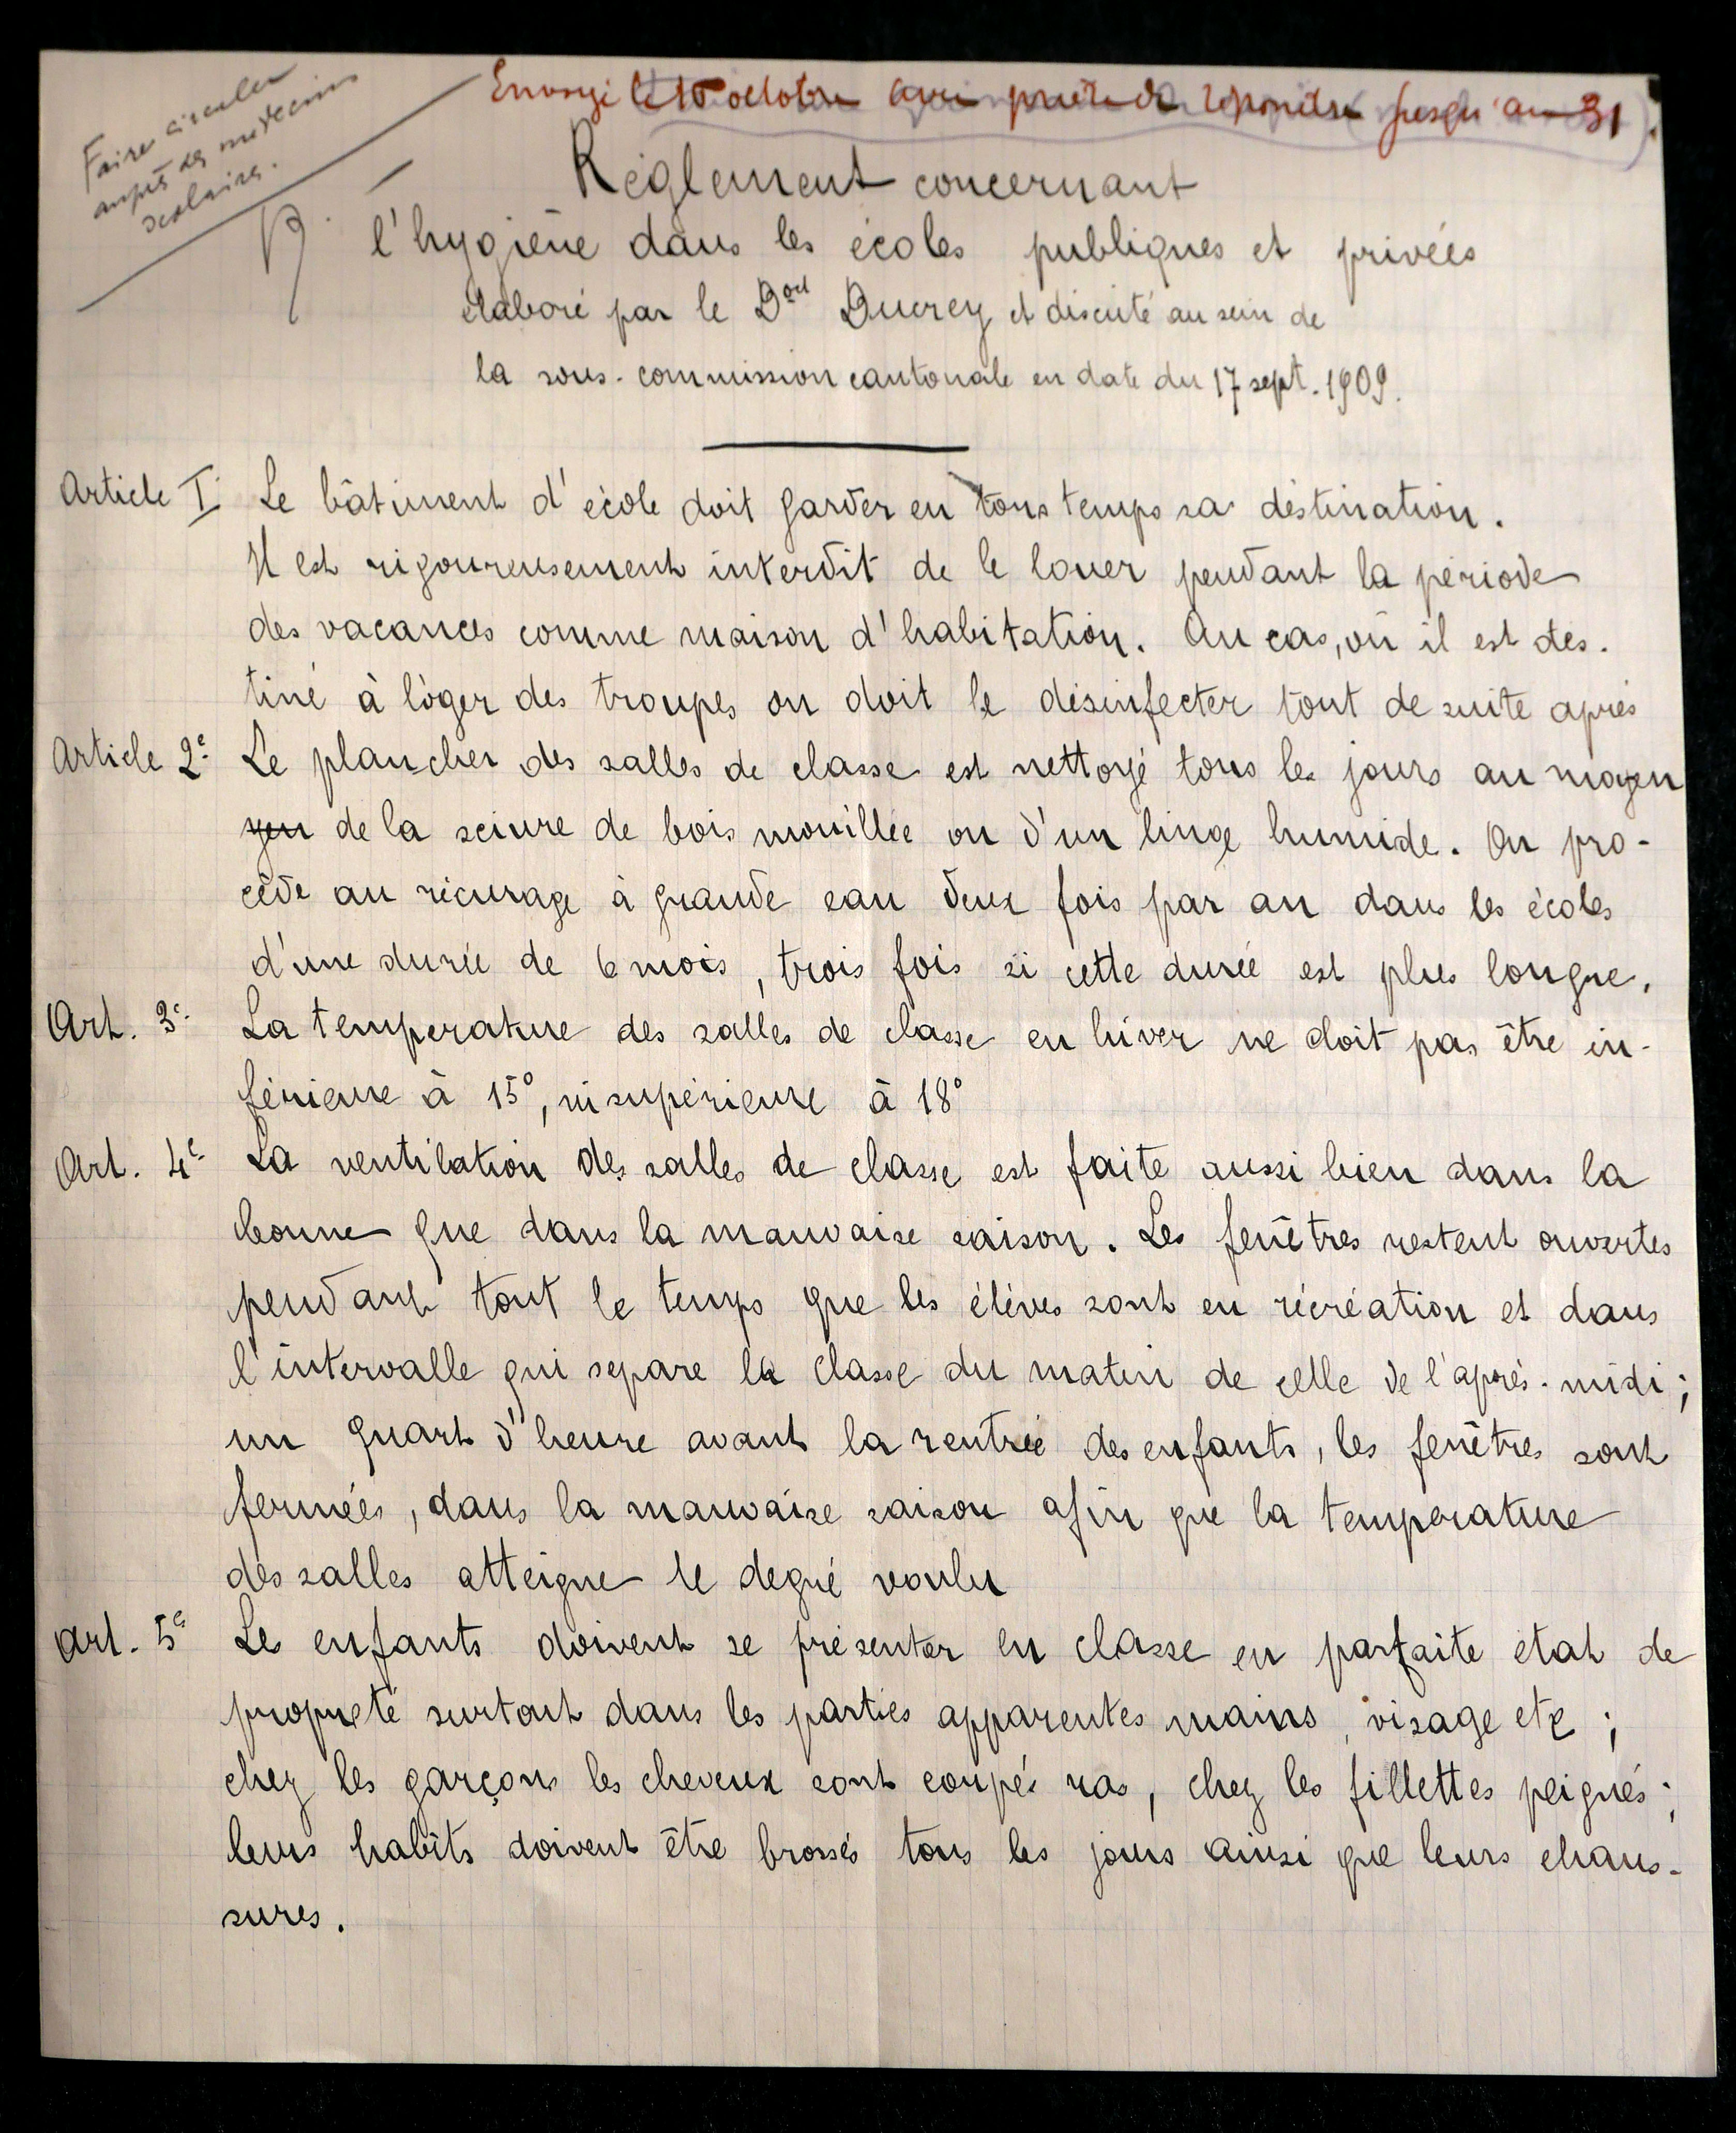 Faire circuler
auprès des médecins
scolaires.
Envoyé le 15 octobre avec prière de répondre jusqu'au 31
Règlement concernant
l'hygiène dans les écoles publiques et privées
élaboré par le Doct Ducrey et discuté au sein de
la sous-commission cantonale en date du 17 sept. 1909.
Article I Le bâtiment d'école doit garder en tous temps sa destination.
Il est rigoureusement interdit de le louer pendant la période
des vacances comme maison d'habitation. Au cas, où il est des-
tiné à loger des troupes on doit le désinfecter tout de suite après
Article 2e Le plancher des salles de classe est nettoyé tous les jours au moyen
yen de la sciure de bois mouillée ou d'un linge humide. On pro-
cède au récurage à grande eau deux fois par an dans les écoles
d'une durée de 6 mois, trois fois si cette durée est plus longue.
Art. 3e La temperature des salles de classe en hiver ne doit pas être in-
férieure à 15°, ni supérieure à 18°
Art. 4e La ventilation des salles de classe est faite aussi bien dans la
bonne que dans la mauvaise saison. Les fenêtres restent ouvertes
pendant tout le temps que les élèves sont en récréation et dans
l'intervalle qui separe la classe du matin de celle de l'après-midi ;
un quart d'heure avant la rentrée des enfants, les fenêtres sont
fermées, dans la mauvaise saison afin que la temperature
des salles atteigne le degré voulu
Art. 5e Les enfants doivent se présenter en classe en parfaite état de
propreté surtout dans les parties apparentes mains, visage etc ;
chez les garçons les cheveux sont coupés ras, chez les fillettes peignés ;
leurs habits doivent être brossés tous les jours ainsi que leurs chaus-
sures.